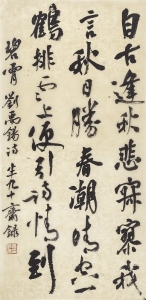 自古逢秋悲寂寥我
言秋日勝春潮晴空一
鶴排雲上便引詩情到
碧霄 劉禹錫詩 生九十齋錄